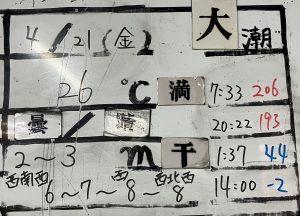 4/21(金) 大潮
26℃ 満 7:33 206
曇/晴 20:22 193
2～3m 干 1:37 44
西南西 西 西北西
6～7～8～8 14:00 -2